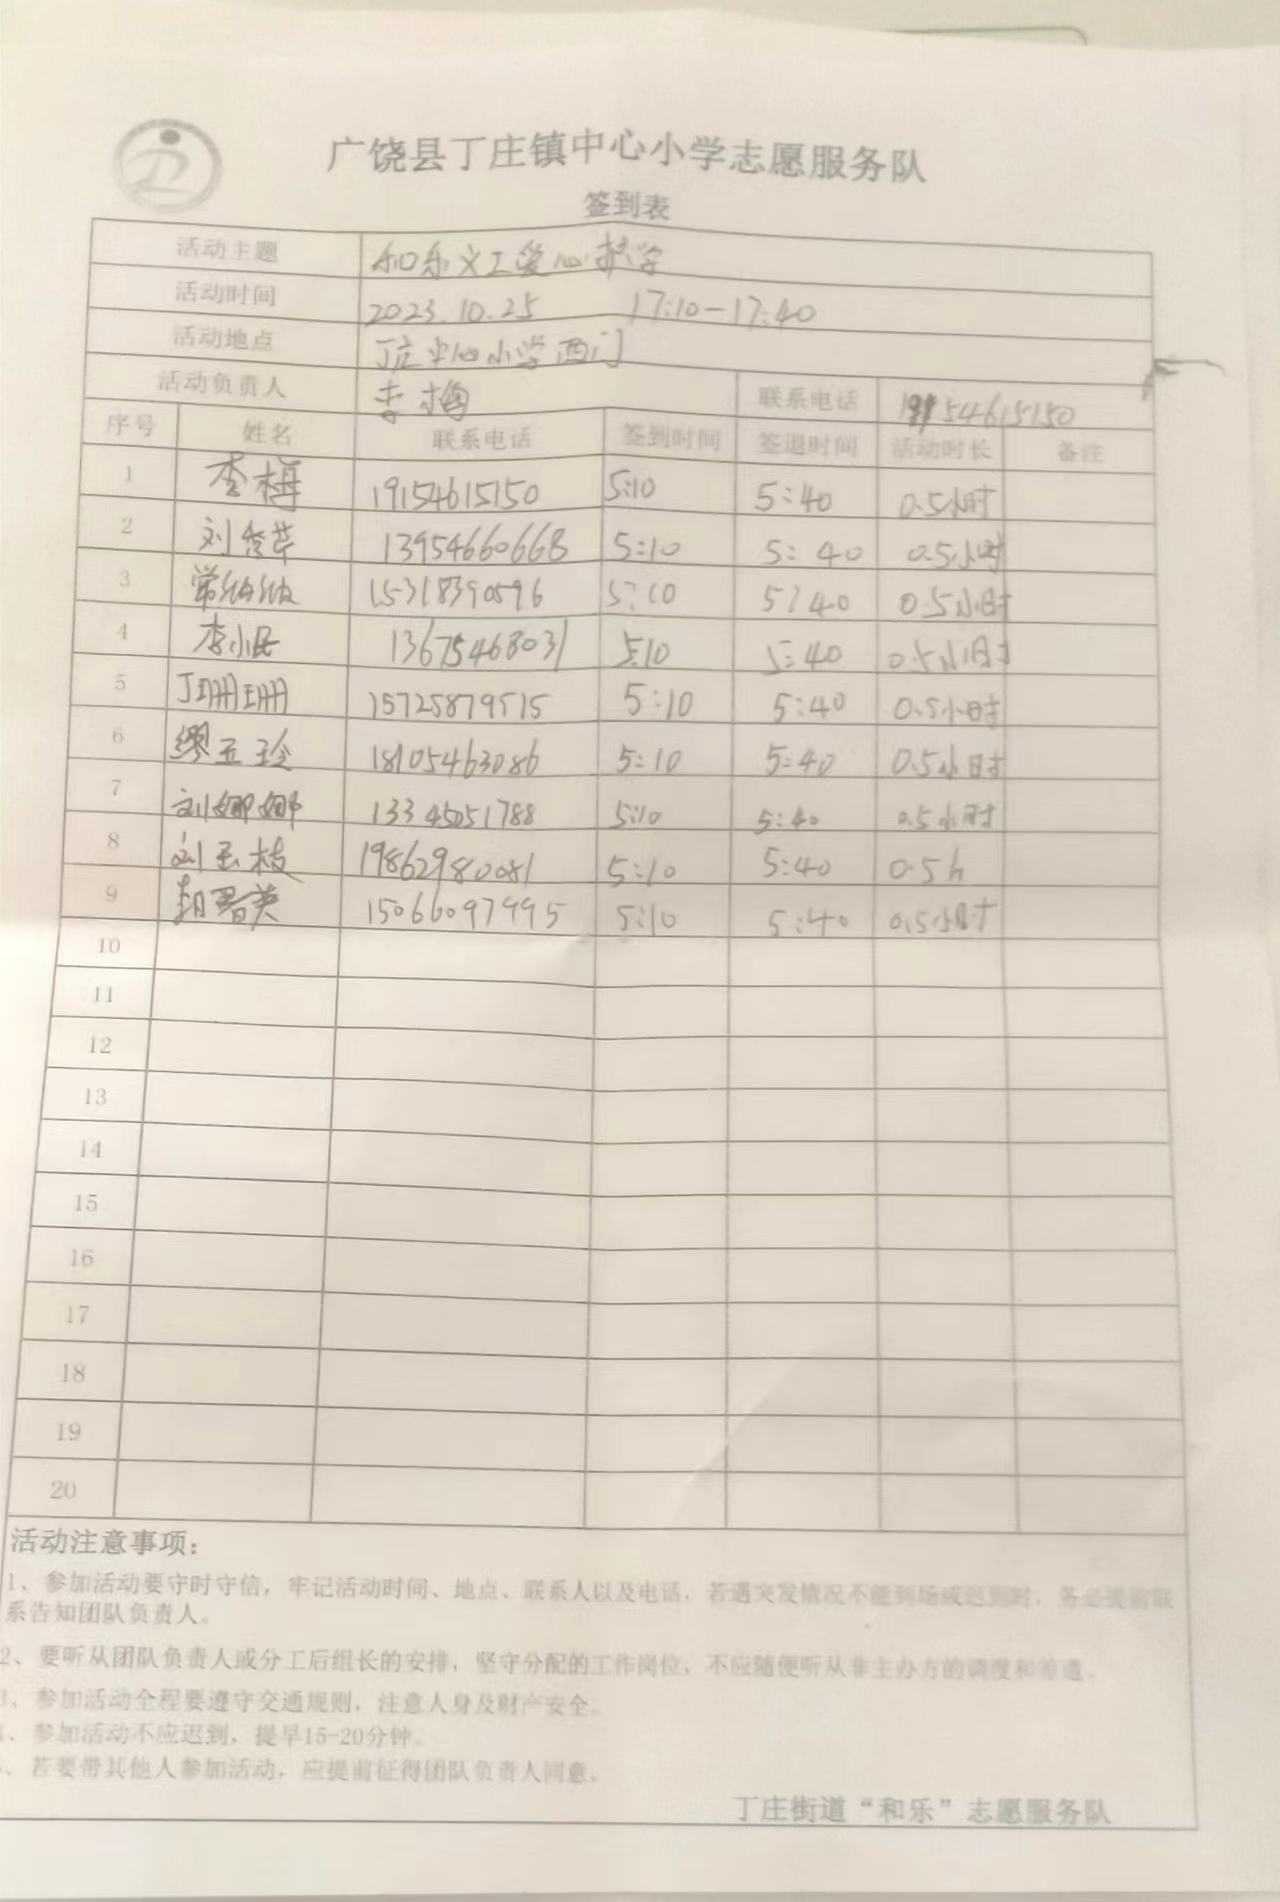 广饶县丁庄镇中心小学志愿服务队
签到表
活动主题 和乐义工爱心护学
活动时间 2023.10.25 17:10-17:40
活动地点 丁庄中心小学西门
活动负责人 李梅 联系电话 19154615150
序号 姓名 联系电话 签到时间 签退时间 活动时长 备注
1 李梅 19154615150 5:10 5:40 0.5小时
2 刘秀芹 13954660668 5:10 5:40 0.5小时
3 常 15318390596 5:10 5:40 0.5小时
4 李小民 13675468031 5:10 5:40 0.5小时
5 丁珊珊 15725879515 5:10 5:40 0.5小时
6 缪玉玲 18105463086 5:10 5:40 0.5小时
7 刘娜娜 13345051788 5:10 5:40 0.5小时
8 刘玉枝 19862980081 5:10 5:40 0.5h
9 15066097995 5:10 5:40 0.5小时
10
11
12
13
14
15
16
17
18
19
20
活动注意事项：
1、参加活动要守时守信，牢记活动时间、地点、联系人以及电话，若遇突发情况不能到场或迟到时，务必提前联
系告知团队负责人。
2、要听从团队负责人或分工后组长的安排，坚守分配的工作岗位，不应随便听从非主办方的调度和差遣。
3、参加活动全程要遵守交通规则，注意人身及财产安全。
、参加活动不应迟到，提早15-20分钟。
、若要带其他人参加活动，应提前征得团队负责人同意。
丁庄街道“和乐”志愿服务队